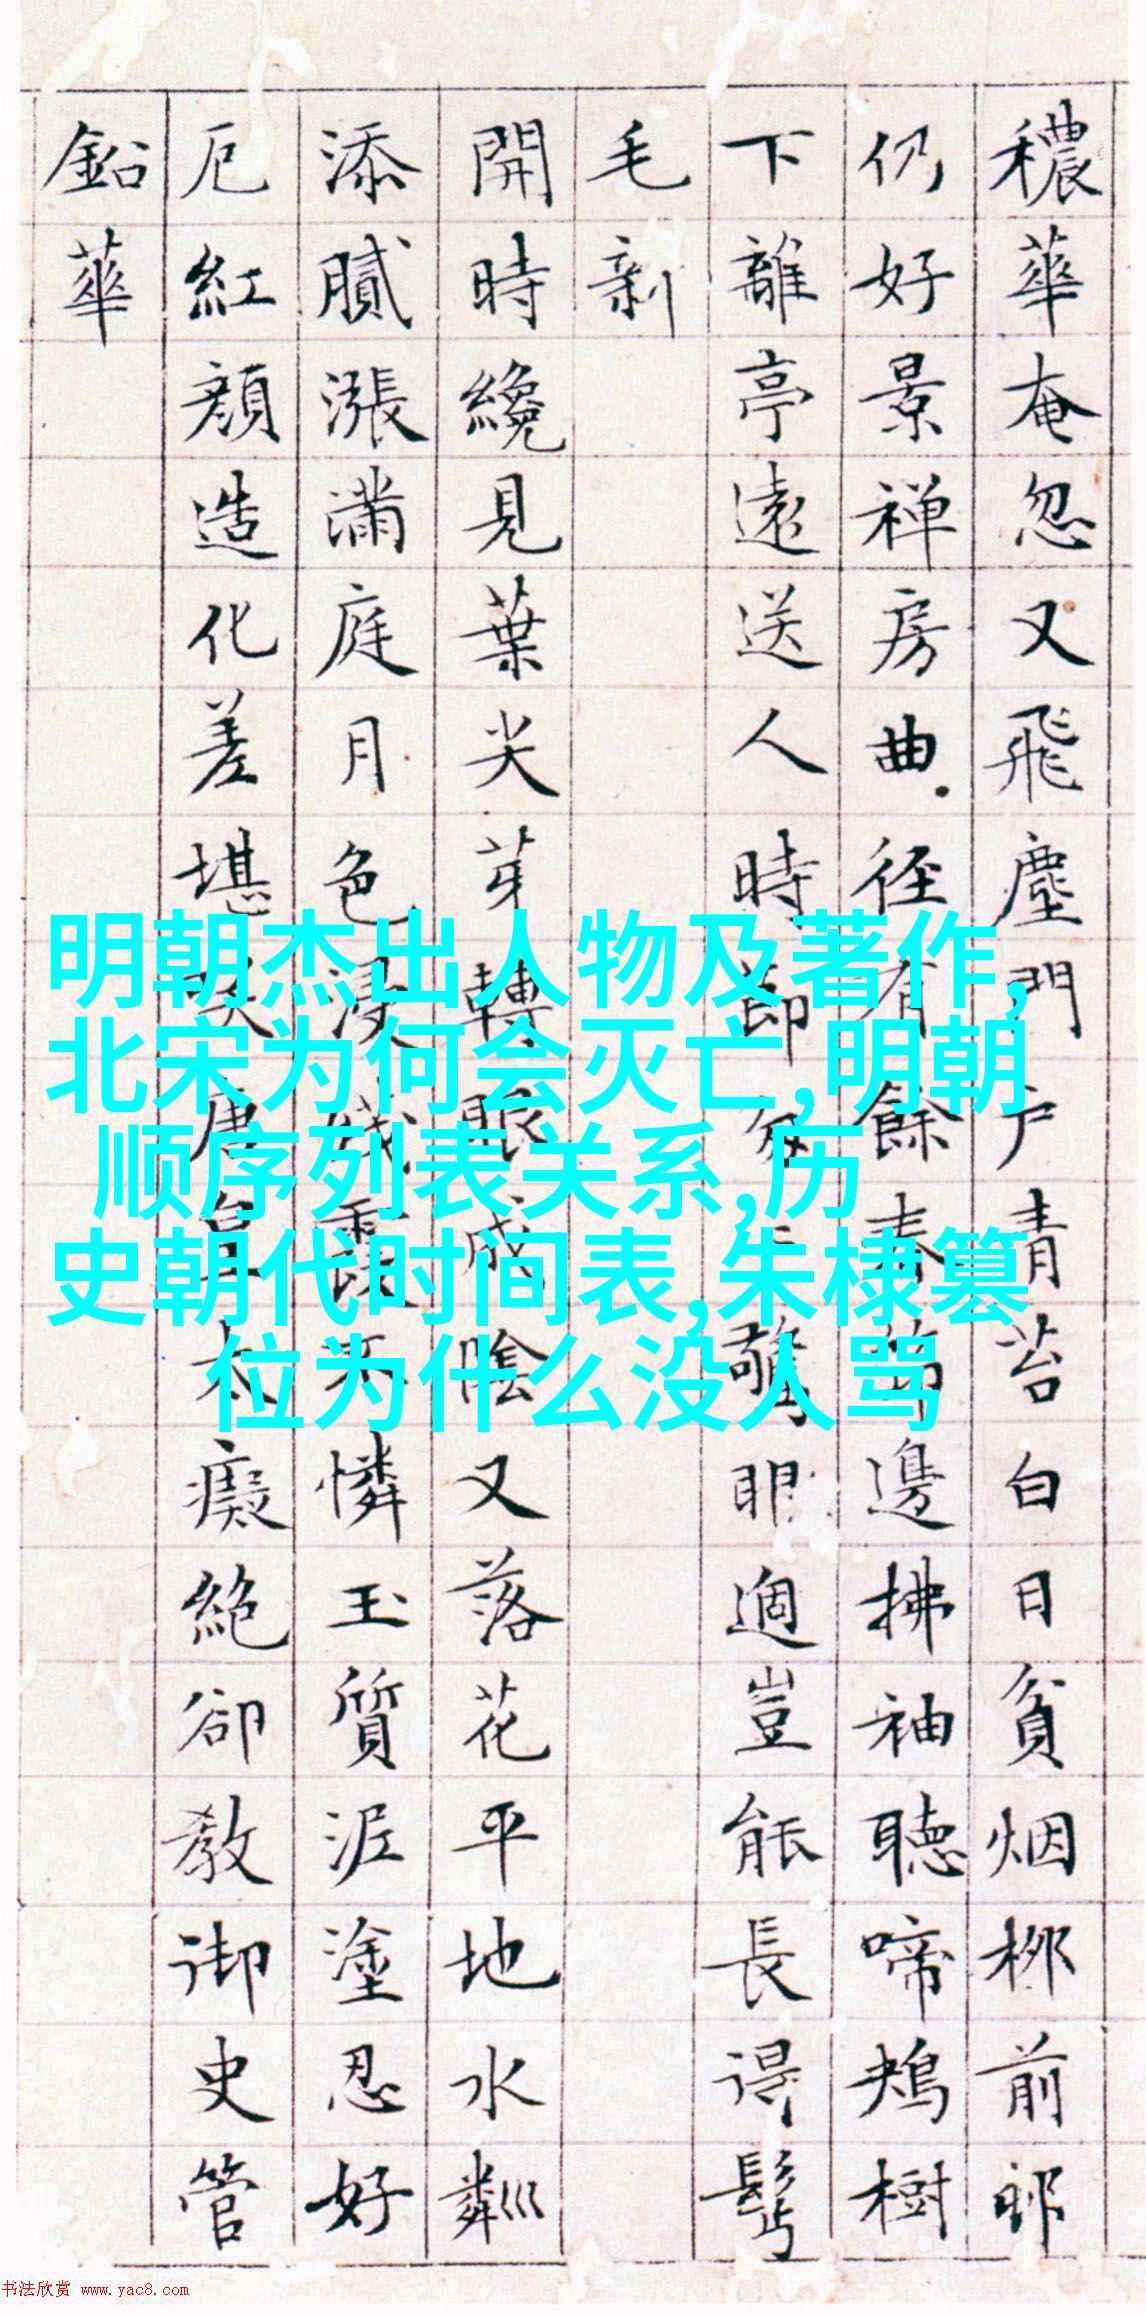 穠華奄忽又飛塵門戶青苔白日貧烟栁前邨
仍好景禪房曲徑有餘春邊拂袖聽啼鳺樹
下離亭遠送人時節匆驚眼過豈能長得鬢
毛新
開時纔見葉尖芽轉眼成陰又落花平地水粼
添膩漲滿庭月色浸殘霞不憐玉質泥塗忍好
厄紅顏造化差堪笑唐宮太癡絕卻教御史管
鉛華
明朝杰出人物及著作,
北宋为何会灭亡,明朝
顺序列表关系,历
史朝代时间表,朱棣篡
位为什么没人骂
书法欣赏 www.yac8.com